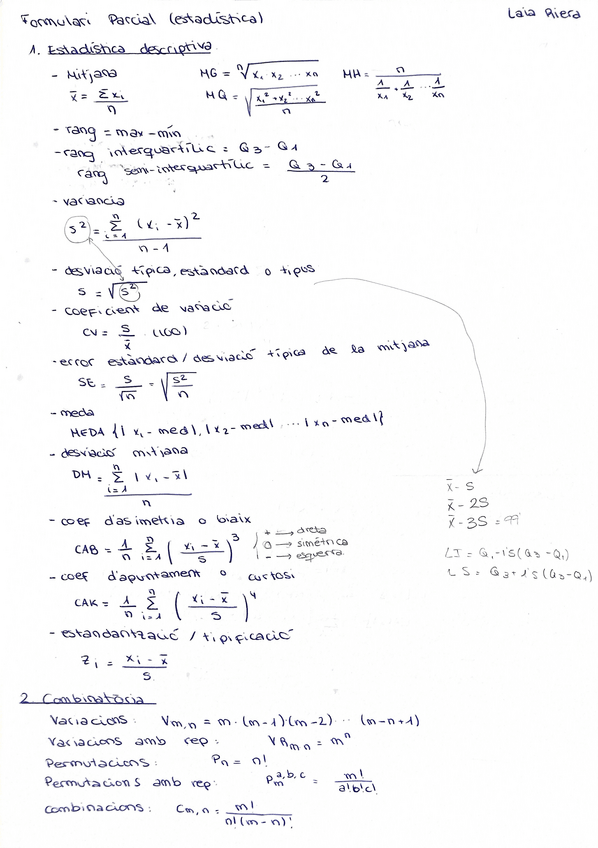 Formulari Parcial (estadística)
Laia Riera
1. Estadística descriptiva
- Mitjana
x̄ = Σxi / n
MG = ⁿ√(x₁ · x₂ ··· xn)
MQ = √((x₁² + x₂² ··· xn²) / n)
MH = n / (1/x₁ + 1/x₂ ··· 1/xn)
- rang = max - mín
- rang interquartílic = Q3 - Q1
rang semi-interquartílic = (Q3 - Q1) / 2
- variància
s² = Σ(i=1, n) (xi - x̄)² / (n - 1)
- desviació típica, estàndard o tipus
s = √s²
- coeficient de variació
CV = s / x̄ (100)
- error estàndard / desviació típica de la mitjana
SE = s / √n = √(s² / n)
- meda
MEDA {|x₁ - med|, |x₂ - med| ··· |xn - med|}
- desviació mitjana
DM = Σ(i=1, n) |xi - x̄| / n
- coef d'asimetria o biaix
CAB = 1/n Σ(i=1, n) ((xi - x̄) / s)³
+ → dreta
0 → simètrica
- → esquerra
- coef d'apuntament o curtosi
CAK = 1/n Σ(i=1, n) ((xi - x̄) / s)⁴
- estandarització / tipificació
Zi = (xi - x̄) / s
x̄ - S
x̄ - 2S
x̄ - 3S = 99
LI = Q₁ - 1'5 (Q3 - Q1)
LS = Q3 + 1'5 (Q3 - Q1)
2. Combinatòria
Variacions: Vm,n = m · (m-1) · (m-2) ··· (m-n+1)
Variacions amb rep: VRm,n = mⁿ
Permutacions: Pn = n!
Permutacions amb rep: Pm^(a,b,c) = m! / (a!b!c!)
combinacions: Cm,n = m! / (n!(m-n)!)